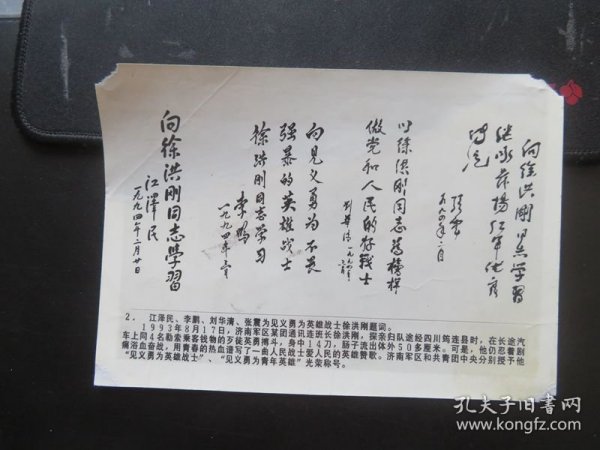 向徐洪剛同志學習
继承發揚红軍优良
传统
张震
一九九四年二月
以徐洪刚同志為榜样
做党和人民的好戰士
刘華清 一九九四年
向见义勇为不畏
强暴的英雄战士
徐洪刚同志学习
李鹏
一九九四年二月
向徐洪剛同志學習
江澤民
一九九四年二月廿日
2. 江泽民、李鹏、刘华清、张震为见义勇为英雄战士徐洪刚题词。
1993年8月17日，济南军区某团通讯连中士班长徐洪刚，探亲归队途经四川筠连县时，在长途汽
车上同4名勒索乘客钱物的歹徒英勇搏斗，身中14刀，肠子外流50多厘米。可是，他仍忍着剧
痛浴血奋战，用青春的热血谱写了一曲人民战士爱人民的英雄赞歌。济南军区和共青团中央分别授予他
“见义勇为英雄战士”、“见义勇为青年英雄”光荣称号。
孔夫子旧书网
www.kongfz.com